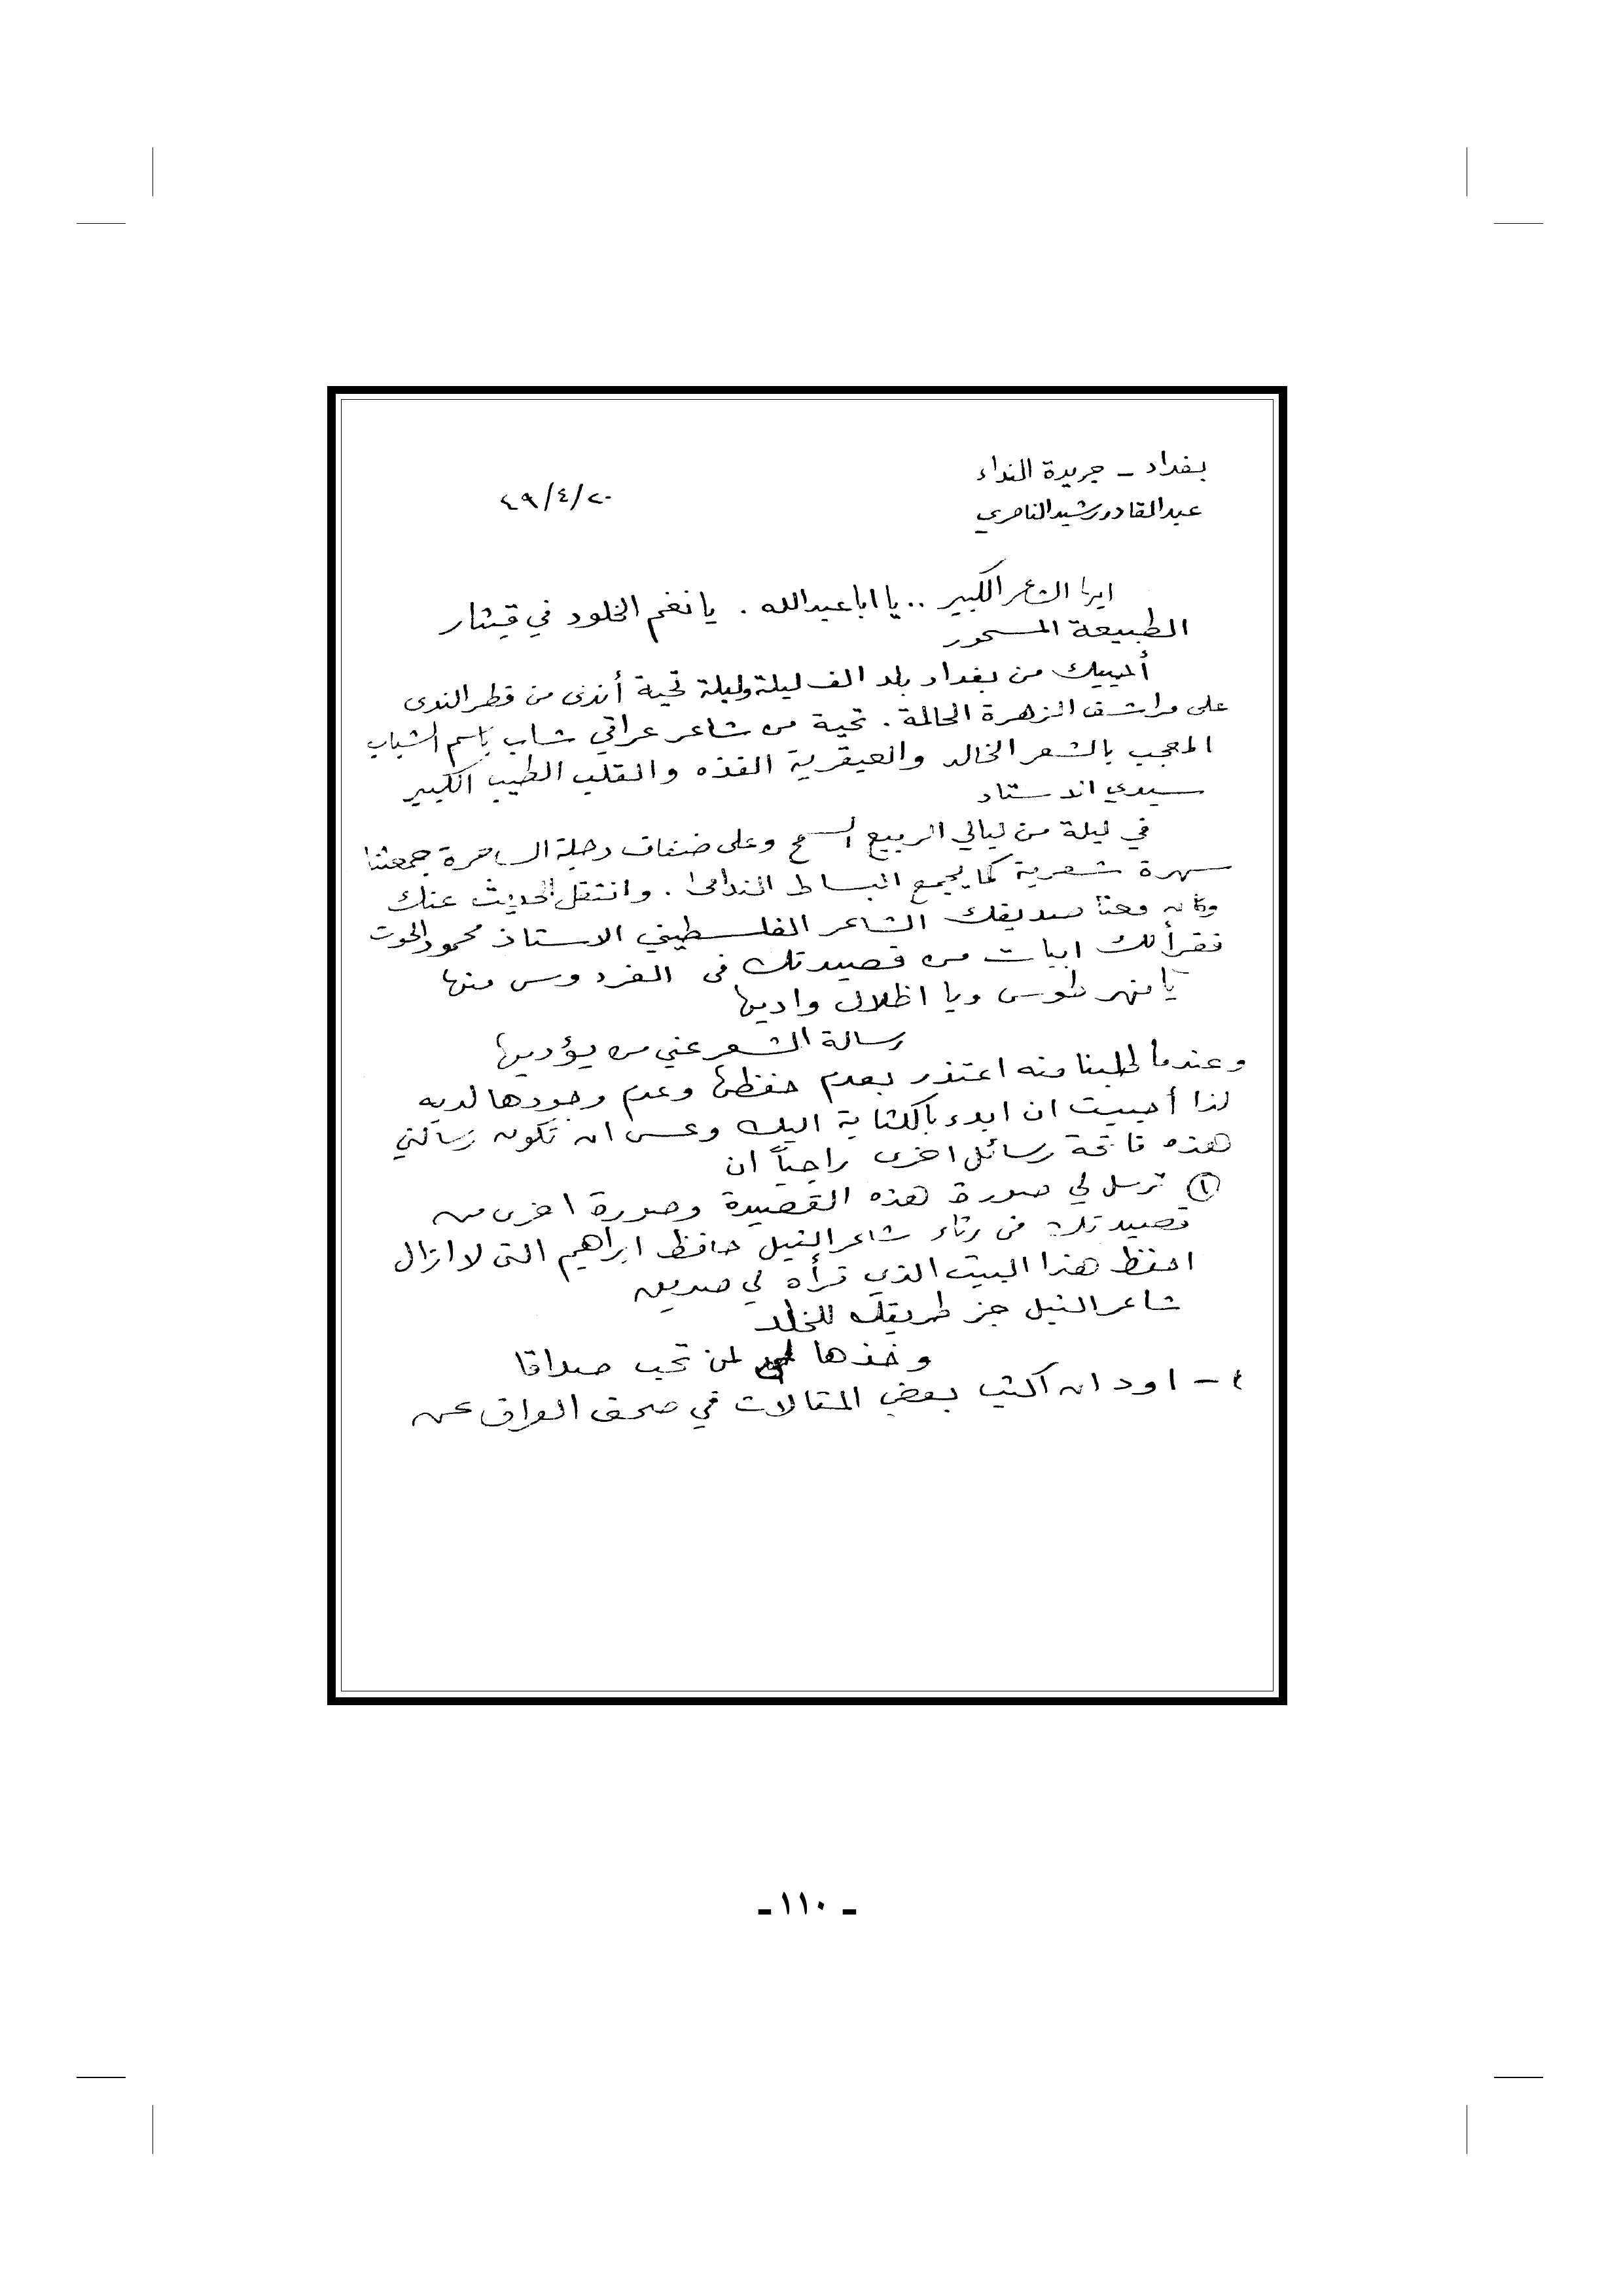 بغداد - جريدة النداء
٢٠/٤/٤٩
عبدالقادر رشيد الناصري
ايها الشاعر الكبير .. يا ابا عبدالله . يا نغم الخلود في قيثار
الطبيعة المسحور
أحييك من بغداد بلد الف ليلة وليلة تحية أندى من قطر الندى
على مراشف الزهرة الحالمة . تحية من شاعر عراقي شاب باسم الشباب
المعجب بالشعر الخالد والعبقرية الفذه والقلب الطيب الكبير
سيدي الاستاذ
في ليلة من ليالي الربيع السمح وعلى ضفاف دجلة الساحرة جمعتنا
سهرة شعرية كما يجمع البساط الندامى . وانتقل الحديث عنك
وكان معنا صديقك الشاعر الفلسطيني الاستاذ محمود الحوت
فقرأ لك ابيات من قصيدتك في الفردوسي منها
يا نهر طوس ويا اظلال واديها
رسالة الشعر عني من يؤديها
وعندما طلبنا منه اعتذر بعدم حفظها وعدم وجودها لديه
لذا أحببت ان ابدء بالكتابة اليك وعسى ان تكون رسالتي
هذه فاتحة رسائل اخرى راجياً ان
(١) ترسل لي صورة هذه القصيدة وصورة اخرى من
قصيدتك في رثاء شاعر النيل حافظ ابراهيم التي لا ازال
احفظ هذا البيت الذي قرأه لي صديق
شاعر النيل جز طريقك للخلد
وخذها لمن تحب صداقا
٢ - اود ان اكتب بعض المقالات في صحف العراق عن
ـ ١١٠ ـ